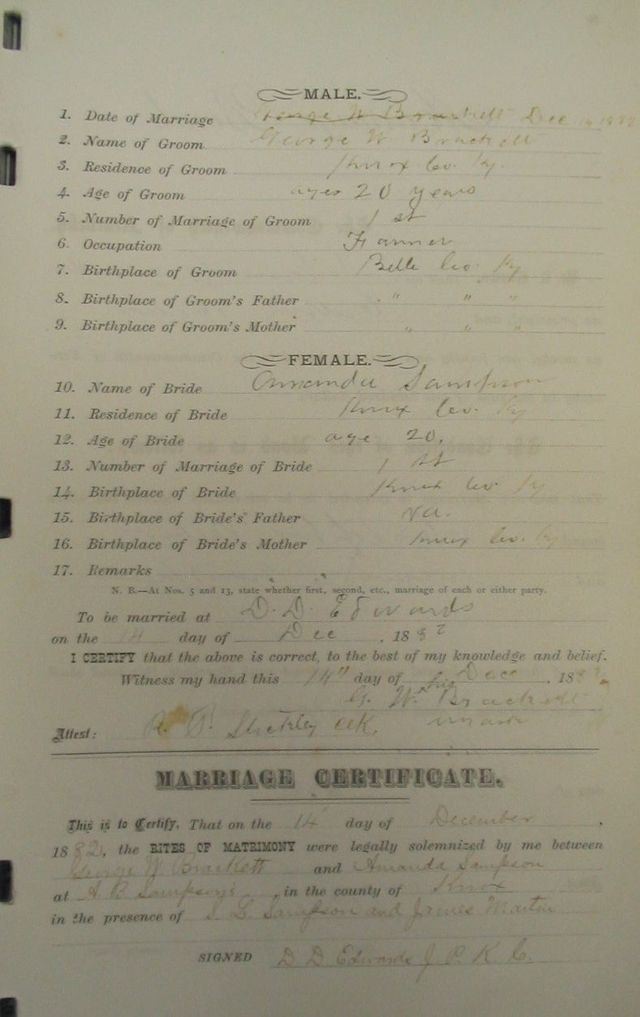 MALE.
1. Date of Marriage George W Brackett Dec 14 1882
2. Name of Groom George W Brackett
3. Residence of Groom Knox Co. Ky.
4. Age of Groom ages 20 years
5. Number of Marriage of Groom 1 st
6. Occupation Farmer
7. Birthplace of Groom Belle Co. Ky
8. Birthplace of Groom's Father " " "
9. Birthplace of Groom's Mother " " "
FEMALE.
10. Name of Bride Amanda Sampson
11. Residence of Bride Knox Co. Ky
12. Age of Bride age 20.
13. Number of Marriage of Bride 1 st
14. Birthplace of Bride Knox Co. Ky
15. Birthplace of Bride's Father Va.
16. Birthplace of Bride's Mother Knox Co. Ky
17. Remarks
N. B.—At Nos. 5 and 13, state whether first, second, etc., marriage of each or either party.
To be married at D. D. Edwards
on the 14 day of Dec , 1882
I CERTIFY that the above is correct, to the best of my knowledge and belief.
Witness my hand this 14" day of Dec , 1882.
G. W. his Brackett
Attest: mark
MARRIAGE CERTIFICATE.
This is to Certify, That on the 14 day of December ,
1882, the RITES OF MATRIMONY were legally solemnized by me between
George W Brackett and Amanda Sampson
at A B Sampson's , in the county of Knox
in the presence of Sampson and James Martin
SIGNED D D Edwards J. P. K. C.